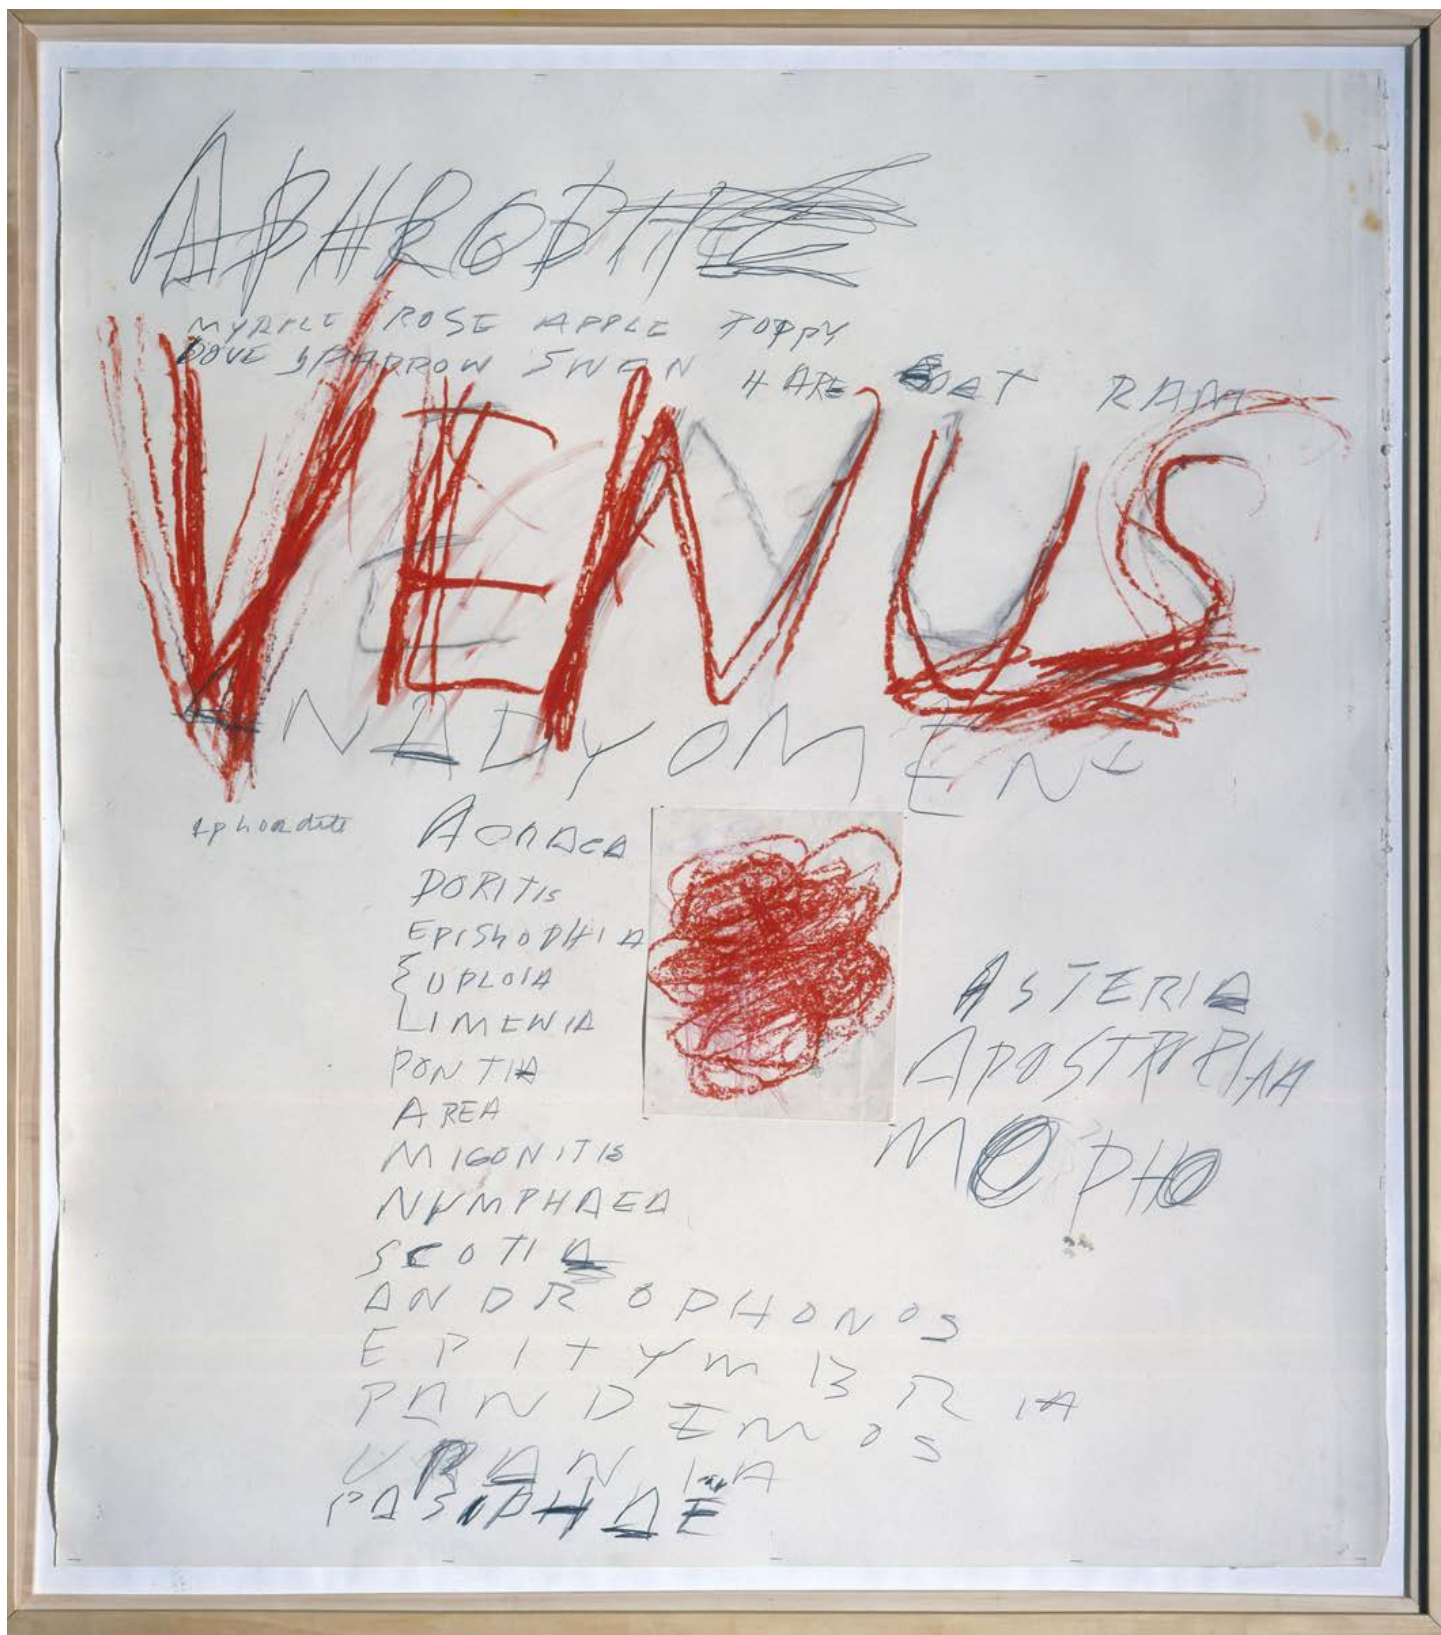 APHRODITE
MYRTLE ROSE APPLE POPPY
DOVE SPARROW SWAN HARE GOAT RAM
VENUS
ANADYOMENE
Aphrodite
ACRAEA
DORITIS
EPISTROPHIA
EUPLOIA
LIMENIA
PONTIA
AREA
MIGONITIS
NYMPHAEA
SCOTIA
ANDROPHONOS
EPITYMBRIA
PANDEMOS
URANIA
PASIPHAE
ASTERIA
APOSTROPHIA
MOPHO